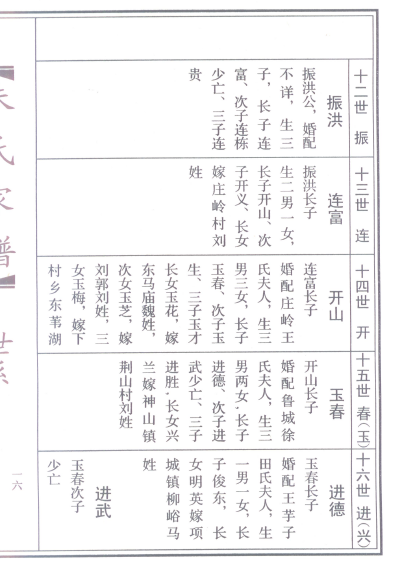 十二世 振
振洪
振洪公，婚配
不详，生三
子，长子连
富、次子连栋
少亡、三子连
贵
十三世 连
连富
振洪长子
生二男一女，
长子开山、次
子开义、长女
嫁庄岭村刘
姓
十四世 开
开山
连富长子
婚配庄岭王
氏夫人，生三
男三女，长子
玉春、次子玉
生、三子玉才
长女玉花，嫁
东马庙魏姓，
次女玉芝，嫁
刘郭刘姓，三
女玉梅，嫁下
村乡东苇湖
十五世 春(玉)
玉春
开山长子
婚配鲁城徐
氏夫人，生三
男两女，长子
进德、次子进
武少亡、三子
进胜，长女兴
兰嫁神山镇
荆山村刘姓
十六世 进(兴)
进德
玉春长子
婚配王芋子
田氏夫人，生
一男一女，长
子俊东，长
女明英嫁项
城镇柳峪马
姓
进武
玉春次子
少亡
氏家谱】世系
一六